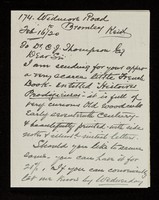 174, Widmore Road
Bromley
Kent
Feb 16/20
To Dr C.J. Thompson Esq
Dear Sir
I am sending for your approv
a very scarce little French
Book entitled Histoires
Prodigieuses: it is full of
very curious Old woodcuts
Early seventeenth Century.
& beautifully printed with side
notes & initial letters
Should you like to
same you can have it for
If you can conveniently
let me know by Wednesday